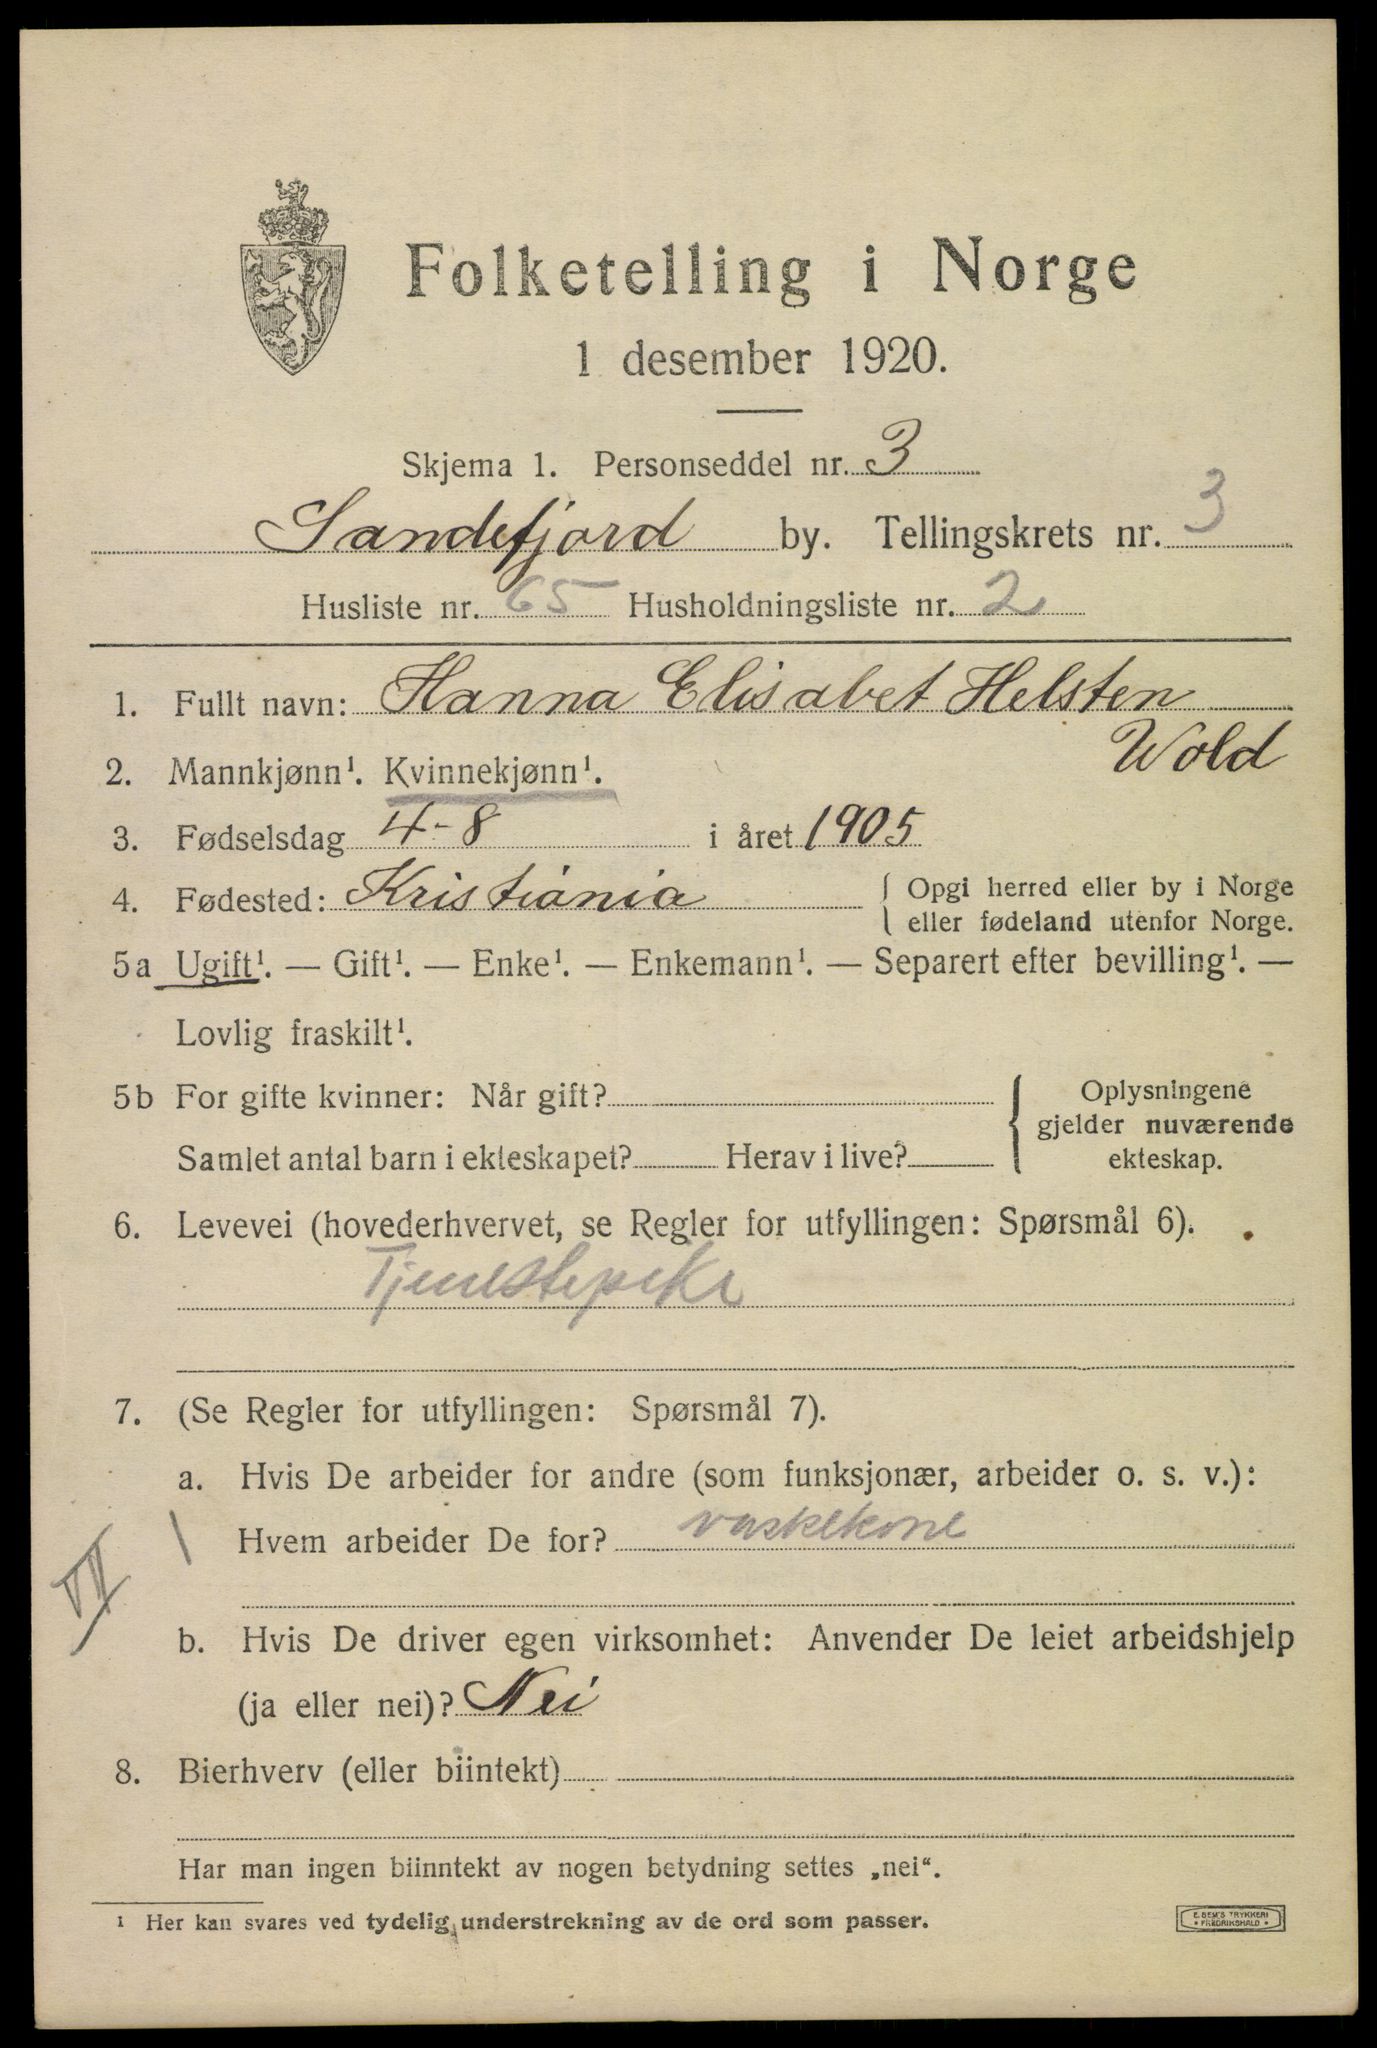 Folketelling i Norge
1 desember 1920.
Skjema 1. Personseddel nr. 3
Sandefjord by. Tellingskrets nr. 3
Husliste nr. 65 Husholdningsliste nr. 2
1. Fullt navn: Hanna Elisabet Helsten
Wold
2. Mannkjønn¹. Kvinnekjønn¹.
3. Fødselsdag 4-8 i året 1905
4. Fødested: Kristiania { Opgi herred eller by i Norge
eller fødeland utenfor Norge.
5a Ugift¹. — Gift¹. — Enke¹. — Enkemann¹. — Separert efter bevilling¹. —
Lovlig fraskilt¹.
5b For gifte kvinner: Når gift? { Oplysningene
gjelder nuværende
Samlet antal barn i ekteskapet? Herav i live? ekteskap.
6. Levevei (hovederhvervet, se Regler for utfyllingen: Spørsmål 6).
Tjenestepike
7. (Se Regler for utfyllingen: Spørsmål 7).
a. Hvis De arbeider for andre (som funksjonær, arbeider o. s. v.):
Hvem arbeider De for? vaskekone
b. Hvis De driver egen virksomhet: Anvender De leiet arbeidshjelp
(ja eller nei)? Nei
8. Bierhverv (eller biintekt)
Har man ingen biinntekt av nogen betydning settes „nei“.
¹ Her kan svares ved tydelig understrekning av de ord som passer.
E. SEM'S TRYKKERI
* FREDRIKSHALD *